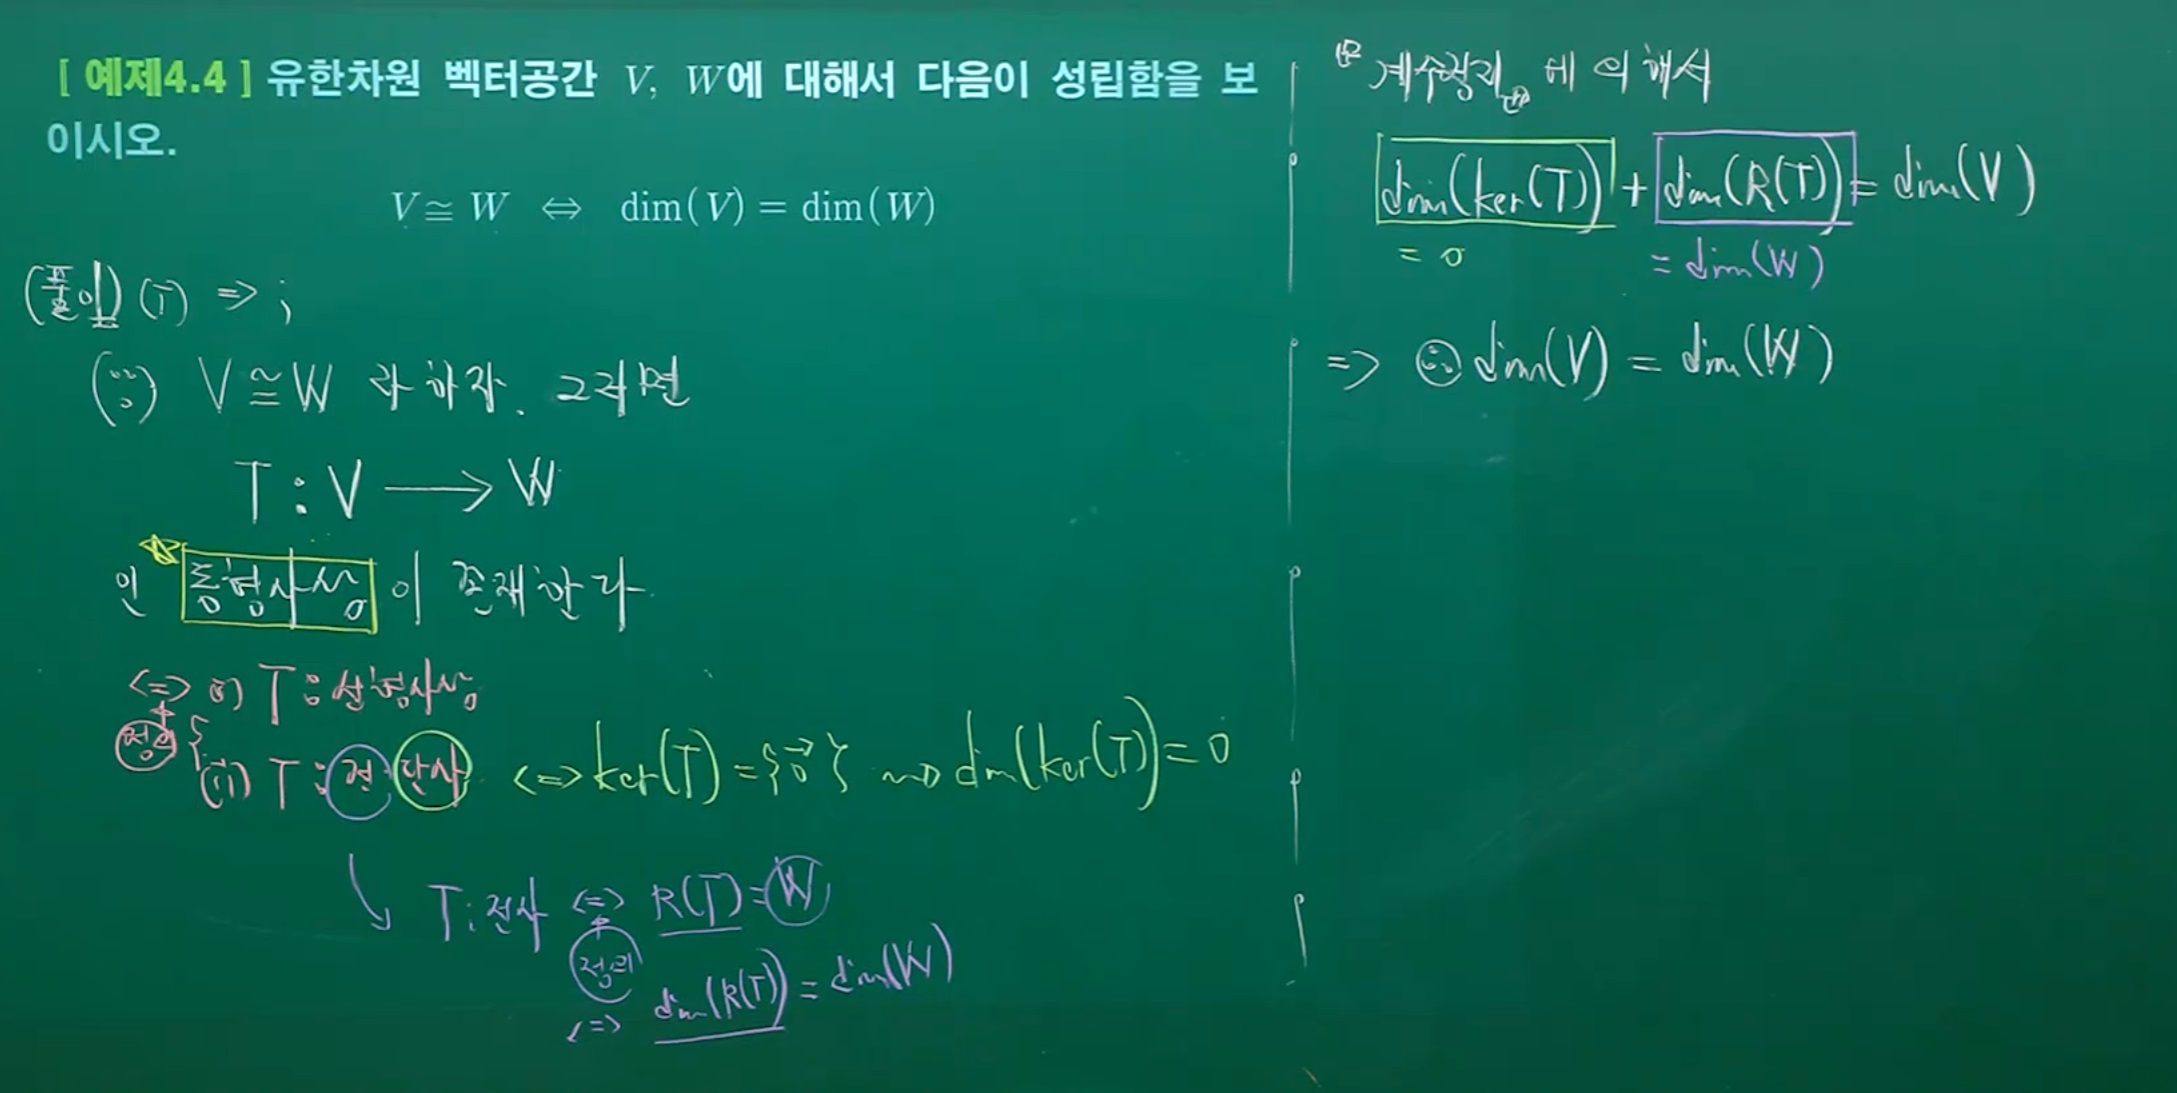 [ 예제4.4 ] 유한차원 벡터공간 V, W에 대해서 다음이 성립함을 보
이시오.
V ≅ W ⇔ dim(V) = dim(W)
(풀이) (I) => ;
(∵) V ≅ W 라 하자. 그러면
T : V → W
인 동형사상 이 존재한다.
<=> (i) T : 선형사상
정의
(ii) T : 전 단사 <=> ker(T) = {0⃗} ⇝ dim(ker(T)) = 0
T : 전사 <=> R(T) = W
정의
<=> dim(R(T)) = dim(W)
계수정리 에 의해서
dim(ker(T)) + dim(R(T)) = dim(V)
= 0 = dim(W)
=> ∴ dim(V) = dim(W)